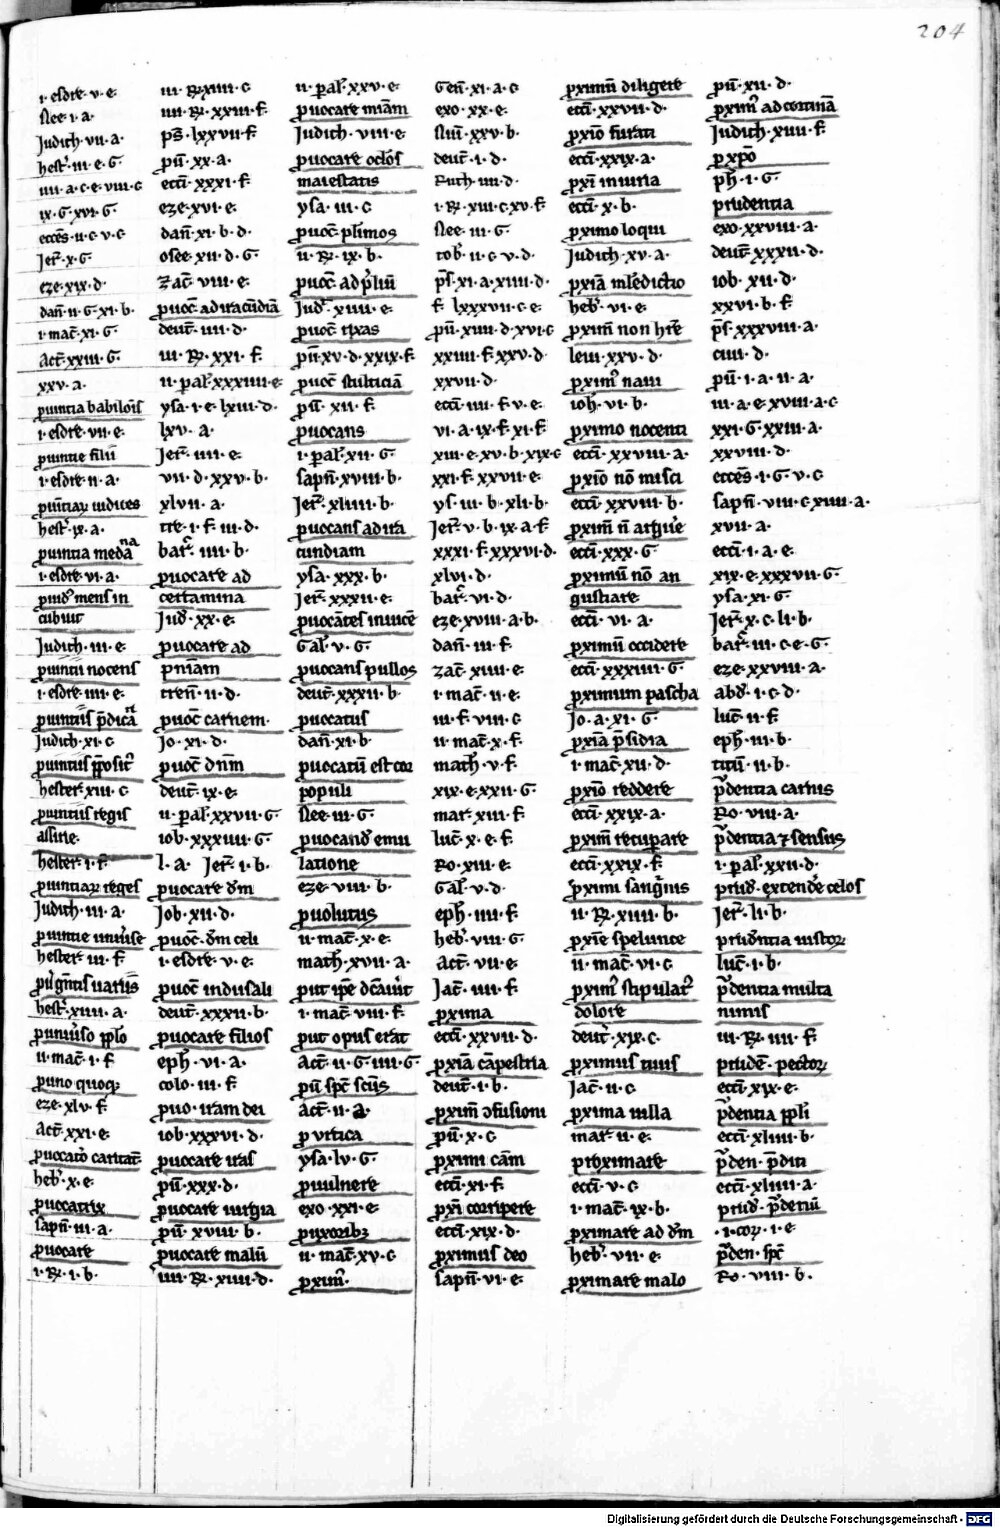 204
i. esdre. v. e.
Nee. i. a.
Judith. vii. a.
hest͛. iii. e. G.
iiii. a. c. e. viii. c
ix. G. xvi. G.
ecces̄. ii. c. v. c
Jer̄. x. G.
eze. xix. d.
dan̄. ii. G. xi. b.
i. mac̄. xi. G.
Act̄. xxiii. G.
xxv. a.
ꝓuintia babilōis
i. esdre. vii. e.
ꝓuintie filii
i. esdre. ii. a.
ꝓuintiaꝝ iudices
hest͛. ix. a.
ꝓuintia medana
i. esdre. vi. a.
cubuit
Judith. iii. e.
ꝓuintii nocens
i. esdre. iiii. e.
Judith. xi. c
hester. xiii. c
ꝓuintiis regis
assirie.
hester. i. f.
ꝓuintiaꝝ reges
Judith. iii. a.
ꝓuintie uniuse
hester. iii. f.
hest͛. xiii. a.
ii. mac̄. i. f
ꝓuno quoqꝫ
eze. xlv. f.
Act̄. xxi. e.
heb͛. x. e.
ꝓuocatrix
sapn̄. iii. a.
ꝓuocare
i. R. i. b.
iii. R. xiiii. c
iiii. R. xxiii. f.
ps̄. lxxvii. f.
pū. xx. a.
ecc̄i. xxxi. f.
eze. xvi. e.
dan̄. xi. b. d.
osee. xii. d. G.
zac̄. viii. e.
ꝓuoc̄. ad iracūdiā
deut̄. iiii. d.
iii. R. xxi. f.
ii. ꝑal͛. xxxiiii. e.
ysa. i. e. lxiii. d.
lxv. a.
Jer̄. iiii. e.
vii. d. xxv. b.
xlvii. a.
tre. i. f. iii. d.
bar̄. iiii. b.
ꝓuocare ad
certamina
Jud͛. xx. e.
ꝓuocare ad
pn̄iam
tren̄. ii. d.
ꝓuoc̄ carnem.
Jo. xi. d.
ꝓuoc̄ dn̄m
deut̄. ix. e.
ii. ꝑal͛. xxvii. G.
iob. xxxiiii. G.
l. a. Jer̄. i. b.
ꝓuocare dm̄
Job. xii. d.
ꝓuoc̄. dm̄ celi
i. esdre. v. e.
deut̄. xxxii. b.
ꝓuocare filios
eph͛. vi. a.
colo. iii. f.
ꝓuo. iram dei
iob. xxxvi. d.
ꝓuocare iras
pū. xxx. d.
ꝓuocare iurgia
pū. xviii. b.
ꝓuocare malū
iiii. R. xiiii. d.
ii. ꝑal͛. xxv. e.
ꝓuocare miā
Judith. viii. e
ꝓuocare oclōs
maiestatis
ysa. iii. c
ii. R. ix. b.
ꝓuoc̄ ad p͛liū
Jud͛. xiiii. e.
ꝓuoc̄ rixas
pū. xv. d. xxix. f.
ꝓuoc̄ stulticiā
pū. xii. f.
ꝓuocans
i. ꝑal͛. xii. G.
sapn̄. xviii. b.
Jer̄. xliiii. b.
ꝓuocans ad ira
cundiam
ysa. xxx. b.
Jer̄. xxxii. e.
ꝓuocātes inuicē
Gal͛. v. G.
ꝓuocans pullos
deut̄. xxxii. b.
ꝓuocatus
dan̄. xi. b.
ꝓuocatū est cor
populi
Nee. iii. G.
ꝓuocand͛ emu
latione
eze. viii. b.
ꝓuolutus
ii. mac̄. x. e.
math. xvii. a.
i. mac̄. viii. f.
ꝓut opus erat
Act̄. ii. G. iiii. G.
ꝓut sp̄c sc̄us
Act̄. ii. a.
ꝓ urtica
ysa. lv. G.
ꝓ uulnere
exo. xxi. e.
ꝓ uxoribꝫ
ii. mac̄. xv. c
ꝓxim͛.
Gen̄. xi. a. c
exo. xx. e.
Nū. xxv. b.
deut̄. i. d.
Ruth. iiii. d.
i. R. xiii. c. xv. f.
Nee. iii. G.
tob͛. ii. c. v. d.
ps̄. xi. a. xiiii. d.
f. lxxxvii. c. e.
pū. xiiii. d. xvi. c
xxiiii. f. xxv. d.
xxvii. d.
ecc̄i. iiii. f. v. e.
vi. a. ix. f. xi. f.
xiii. e. xv. b. xix. c
xxi. f. xxvii. e.
ys. iii. b. xli. b.
Jer̄. v. b. ix. a. f.
xxxi. f. xxxvi. d.
xlvi. d.
bar̄. vi. d.
eze. xviii. a. b.
dan̄. iii. f.
zac̄. xiiii. e.
i. mac̄. ii. e.
iii. f. viii. c
ii. mac̄. x. f.
math͛. v. f.
xix. e. xxii. G.
mar͛. xii. f.
luc̄. x. e. f.
Ro. xiii. e.
Gal͛. v. d.
eph͛. iiii. f.
heb͛. viii. G.
Act̄. vii. e.
Jac̄. iiii. f.
ꝓxima
ecc̄i. xxvii. d.
ꝓxīa cāpestria
deut̄. i. b.
ꝓxim̄ ↄfusioni
pū. x. c
ꝓximi cām
ecc̄i. xi. f.
ꝓxi͞ corripere
ecc̄i. xix. d.
ꝓximus deo
sapn̄. vi. e.
ꝓximū diligere
ecc̄i. xxvii. d.
ꝓxīo furati
ecc̄i. xxix. a.
ꝓxi͞ iniuria
ecc̄i. x. b.
ꝓximo loqui
Judith. xv. a.
ꝓxīa mledictio
heb͛. vi. e.
ꝓxim̄ non hr̄e
leui. xxv. d.
ꝓxim͛ naui
ioh͛. vi. b.
ꝓximo nocenti
ecc̄i. xxviii. a.
ꝓxīo nō misci
ecc̄i. xxviii. b.
ꝓxim̄ n̄ arguē
ecc̄i. xxx. G
ꝓximū nō an
gustiare
ecc̄i. vi. a.
ꝓximū occidere
ecc̄i. xxxiiii. G.
ꝓximum pascha
Jo. a. xi. G.
ꝓxīa p̄sidia
i. mac̄. xii. d.
ꝓxīo reddere
ecc̄i. xxix. a.
ꝓxim̄ recuꝑare
ecc̄i. xxix. f.
ꝓximi sanguis
ii. R. xiiii. b.
ꝓxīe spelunce
ii. mac̄. vi. c
ꝓxim͛ stipulat͛
dolore
deut͛. xix. c.
ꝓximus tuus
Jac̄. ii. c
ꝓxima uilla
mar͛. ii. e.
proximare
ecc̄i. v. c
i. mac̄. ix. b.
ꝓximare ad dm̄
heb͛. vii. e.
ꝓximare malo
pū. xii. d.
Judith. xiii. f.
ꝓ xp̄o
ph͛. i. G
prudentia
exo. xxviii. a.
deut̄. xxxii. d.
iob. xii. d.
xxvi. b. f.
ps̄. xxxviii. a.
ciiii. d.
pū. i. a. ii. a.
iii. a. e. xviii. a. c
xxi. G. xxiii. a.
xxviii. d.
ecces̄. i. G. v. c
sapn̄. viii. c. xiiii. a.
xvii. a.
ecc̄i. i. a. e.
xix. e. xxxvii. G.
ysa. xi. G.
Jer̄. x. c. li. b.
bar̄. iii. c. e. G.
eze. xxviii. a.
abd͛. i. c. d.
luc̄. ii. f.
eph͛. iii. b.
titū. ii. b.
p͛dentia carnis
Ro. viii. a.
p͛dentia ⁊ sensus
i. ꝑal͛. xxii. d.
prud͛. extende͛ celos
Jer̄. li. b.
prud͛ntia iustoꝝ
luc̄. i. b.
p͛dentia multa
nimis
iii. R. iiii. f.
pruden̄. pectoꝝ
ecc̄i. xix. e.
p͛dentia ppli
ecc̄i. xliiii. b.
ecc̄i. xliiii. a.
i. coꝝ. i. e
p͛den. sp̄c
Ro. viii. b.
Digitalisierung gefördert durch die Deutsche Forschungsgemeinschaft - DFG